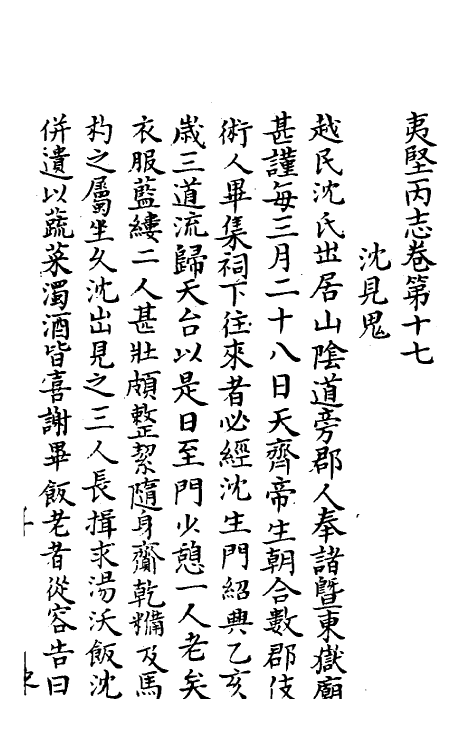 夷堅丙志卷第十七
沈見鬼
越民沈氏世居山陰道旁郡人奉諸曁東嶽廟
甚謹每三月二十八日天齊帝生朝合數郡伎
術人畢集祠下往來者必經沈生門紹興乙亥
歲三道流歸天台以是日至門少憩一人老矣
衣服藍縷二人甚壯頗整潔隨身齎乾糒及馬
杓之屬坐久沈出見之三人長揖求湯沃飯沈
併遺以蔬菜濁酒皆喜謝畢飯老者從容告曰